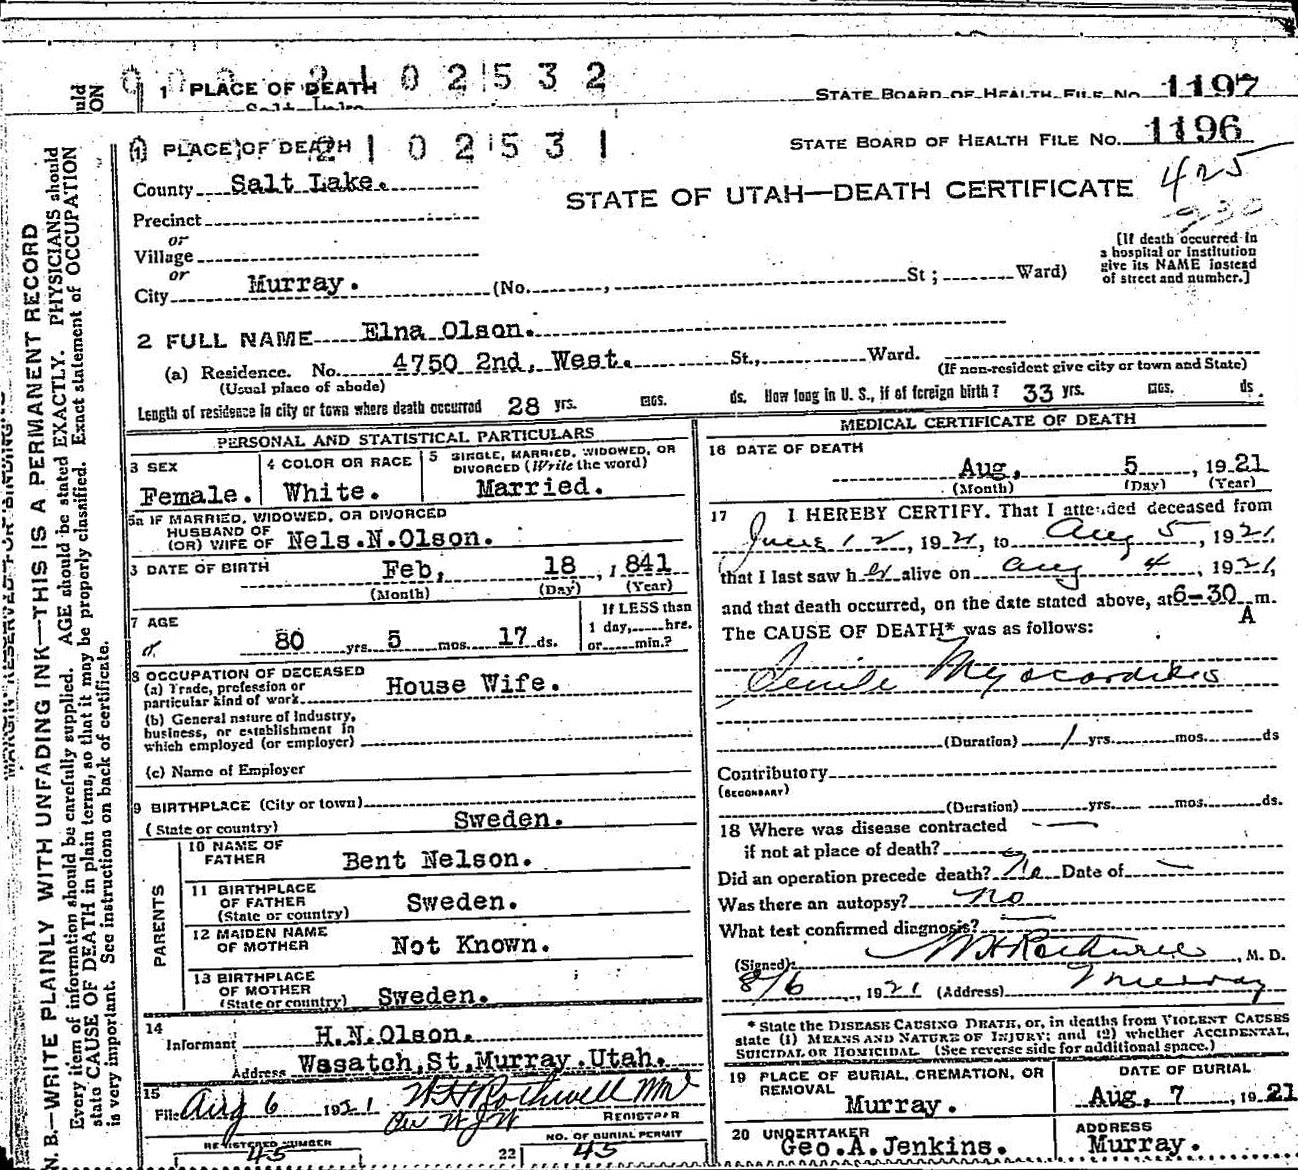 1 PLACE OF DEATH 2102532
STATE BOARD OF HEALTH FILE NO. 1197
PLACE OF DEATH 2102531
STATE BOARD OF HEALTH FILE NO. 1196
County Salt Lake.
STATE OF UTAH—DEATH CERTIFICATE 425
930
Precinct
or
Village
or
City Murray. (No. , St ; Ward)
(If death occurred in
a hospital or institution
give its NAME instead
of street and number.]
2 FULL NAME Elna Olson.
(a) Residence. No. 4750 2nd, West. St., Ward.
(Usual place of abode)
(If non-resident give city or town and State)
Length of residence in city or town where death occurred 28 yrs. mos. ds. How long in U. S., if of foreign birth? 33 yrs. mos. ds.
PERSONAL AND STATISTICAL PARTICULARS
3 SEX
Female.
4 COLOR OR RACE
White.
5 SINGLE, MARRIED, WIDOWED, OR
DIVORCED (Write the word)
Married.
5a IF MARRIED, WIDOWED, OR DIVORCED
HUSBAND OF
(OR) WIFE OF Nels.N.Olson.
DATE OF BIRTH Feb, 18 , 1841
(Month) (Day) (Year)
7 AGE
80 yrs 5 mos. 17 ds.
If LESS than
1 day, hrs.
or min.?
8 OCCUPATION OF DECEASED
(a) Trade, profession or
particular kind of work House Wife.
(b) General nature of Industry,
business, or establishment in
which employed (or employer)
(c) Name of Employer
9 BIRTHPLACE (City or town)
(State or country) Sweden.
PARENTS
10 NAME OF
FATHER Bent Nelson.
11 BIRTHPLACE
OF FATHER
(State or country) Sweden.
12 MAIDEN NAME
OF MOTHER Not Known.
13 BIRTHPLACE
OF MOTHER
(State or country) Sweden.
14
Informant H.N.Olson.
Address Wasatch,St,Murray.Utah.
15
File Aug 6 1921 W H Rothwell MD
Per W J W
REGISTRAR
REGISTERED NUMBER
45
22 NO. OF BURIAL PERMIT
45
MEDICAL CERTIFICATE OF DEATH
16 DATE OF DEATH
Aug, 5 , 1921
(Month) (Day) (Year)
17 I HEREBY CERTIFY. That I attended deceased from
June 12, 1921, to Aug 5, 1921.
that I last saw her alive on Aug 4, 1921,
and that death occurred, on the date stated above, at 6-30 m.
A
The CAUSE OF DEATH* was as follows:
Senile Myocarditis
(Duration) 1 yrs. mos. ds
Contributory
(SECONDARY)
(Duration) yrs. mos. ds.
18 Where was disease contracted
if not at place of death?
Did an operation precede death? No Date of
Was there an autopsy? no
What test confirmed diagnosis?
(Signed) W H Rothwell, M. D.
8/6, 1921 (Address) Murray
* State the DISEASE CAUSING DEATH, or, in deaths from VIOLENT CAUSES
state (1) MEANS AND NATURE OF INJURY; and (2) whether ACCIDENTAL,
SUICIDAL OR HOMICIDAL. (See reverse side for additional space.)
19 PLACE OF BURIAL, CREMATION, OR
REMOVAL
Murray.
DATE OF BURIAL
Aug, 7 , 1921
20 UNDERTAKER
Geo.A.Jenkins.
ADDRESS
Murray.
MARGIN RESERVED FOR BINDING
N. B.—WRITE PLAINLY WITH UNFADING INK—THIS IS A PERMANENT RECORD
Every item of information should be carefully supplied. AGE should be stated EXACTLY. PHYSICIANS should
state CAUSE OF DEATH in plain terms, so that it may be properly classified. Exact statement of OCCUPATION
is very important. See instructions on back of certificate.